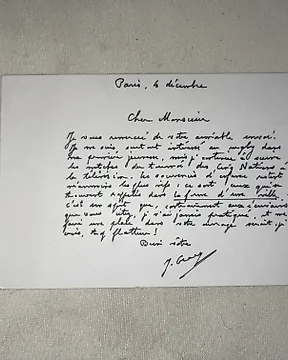 Paris, 4 décembre
Cher Monsieur
Je vous remercie de votre aimable envoi.
Je me suis, tout intéressé au rugby dans
ma première jeunesse, mais j'continue à suivre
les matches du tournoi des Cinq Nations à
la télévision. Les souvenirs d'enfance restent
néanmoins les plus vifs, ce sont ceux qui se
trouvent dans la forme d'une ville.
C'est un sport que, contrairement aux écrivains
que vous citez, je n'ai jamais pratiqué, et me
une place dans votre ouvrage serait, je
crois, flatteur!
Bien vôtre
J. Gracq